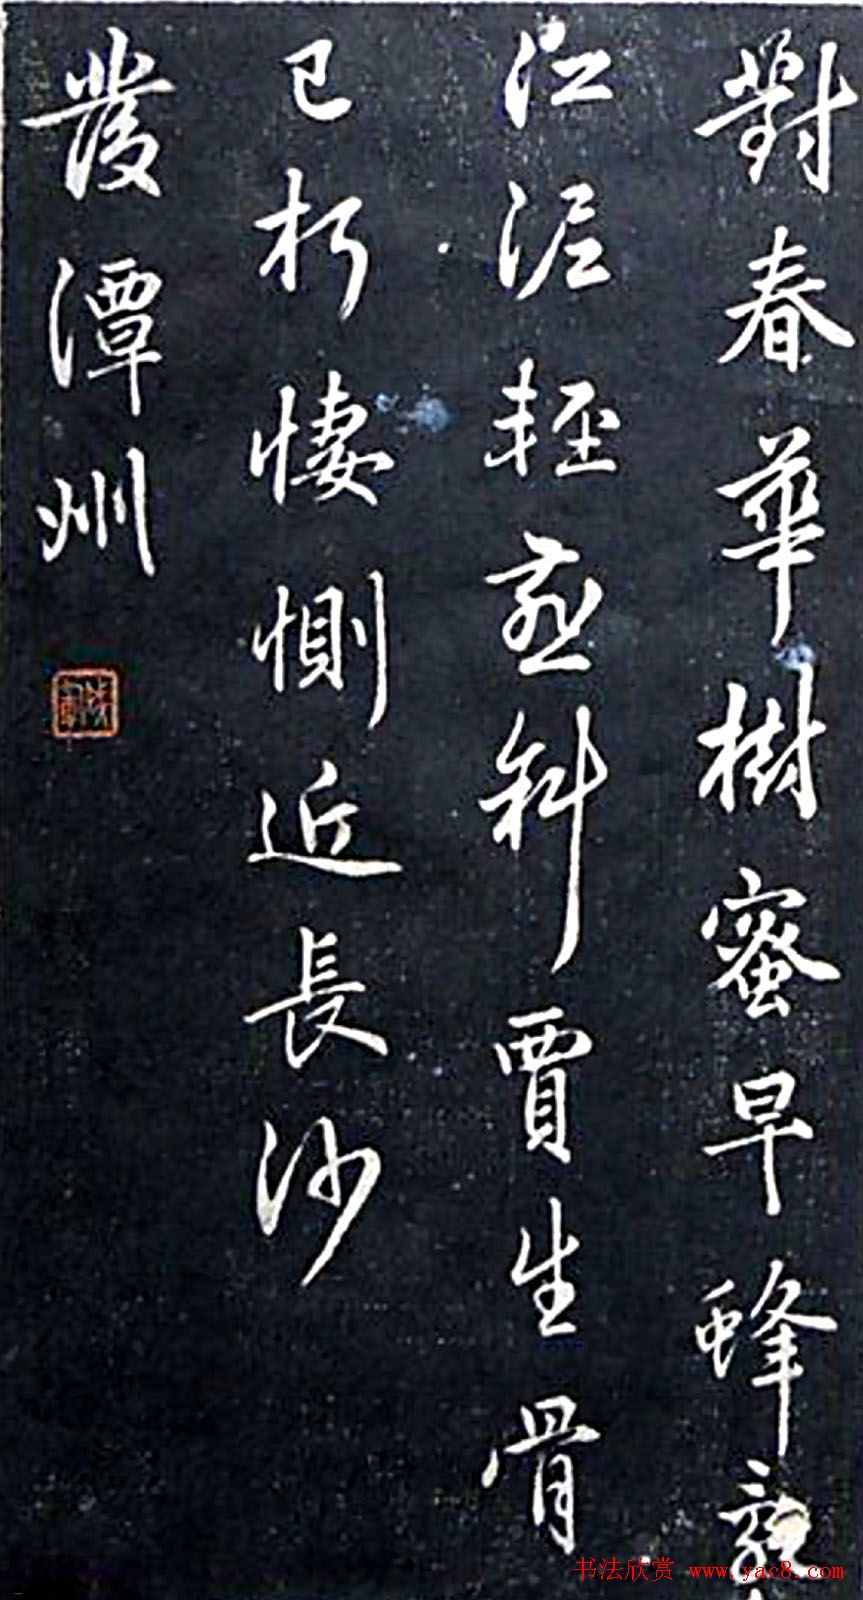 對春華樹蜜早蜂亂
江泥輕燕斜賈生骨
已朽悽惻近長沙
發潭州
书法欣赏 www.yac8.com